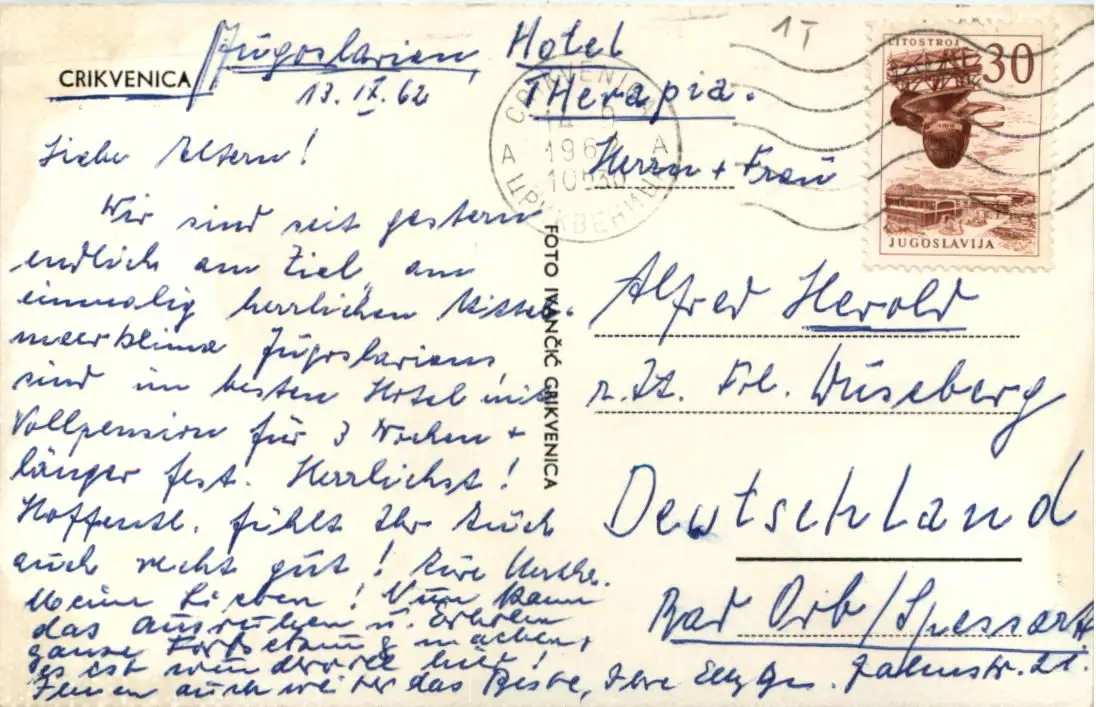 CRIKVENICA / Jugoslavien, Hotel
13. IX. 62 THerapia.
Liebe Eltern!
Wir sind seit gestern
endlich am Ziel, am
einmalig herrlichen Mittel-
meerklima Jugoslaviens,
sind im besten Hotel mit
Vollpension für 3 Wochen +
länger fest. Herrlichst!
Hoffentl. fühlt Ihr Euch
auch recht gut! Eure Herthe.
Meine Lieben! Nun kann
das ausruhen u. Erholen
ganze Fortsetzung machen,
es ist wundervoll hier!
Ihnen auch weiter das Beste, Ihre
FOTO IVANČIĆ CRIKVENICA
CRIKVENICA
14 9
196
10
A A
ЦРИКВЕНИЦА
1T
LITOSTROJ
30
JUGOSLAVIJA
Herrn + Frau
Alfred Herold
z. Zt. Frl. Wüseberg
Deutschland
Bad Orb/Spessart
21.